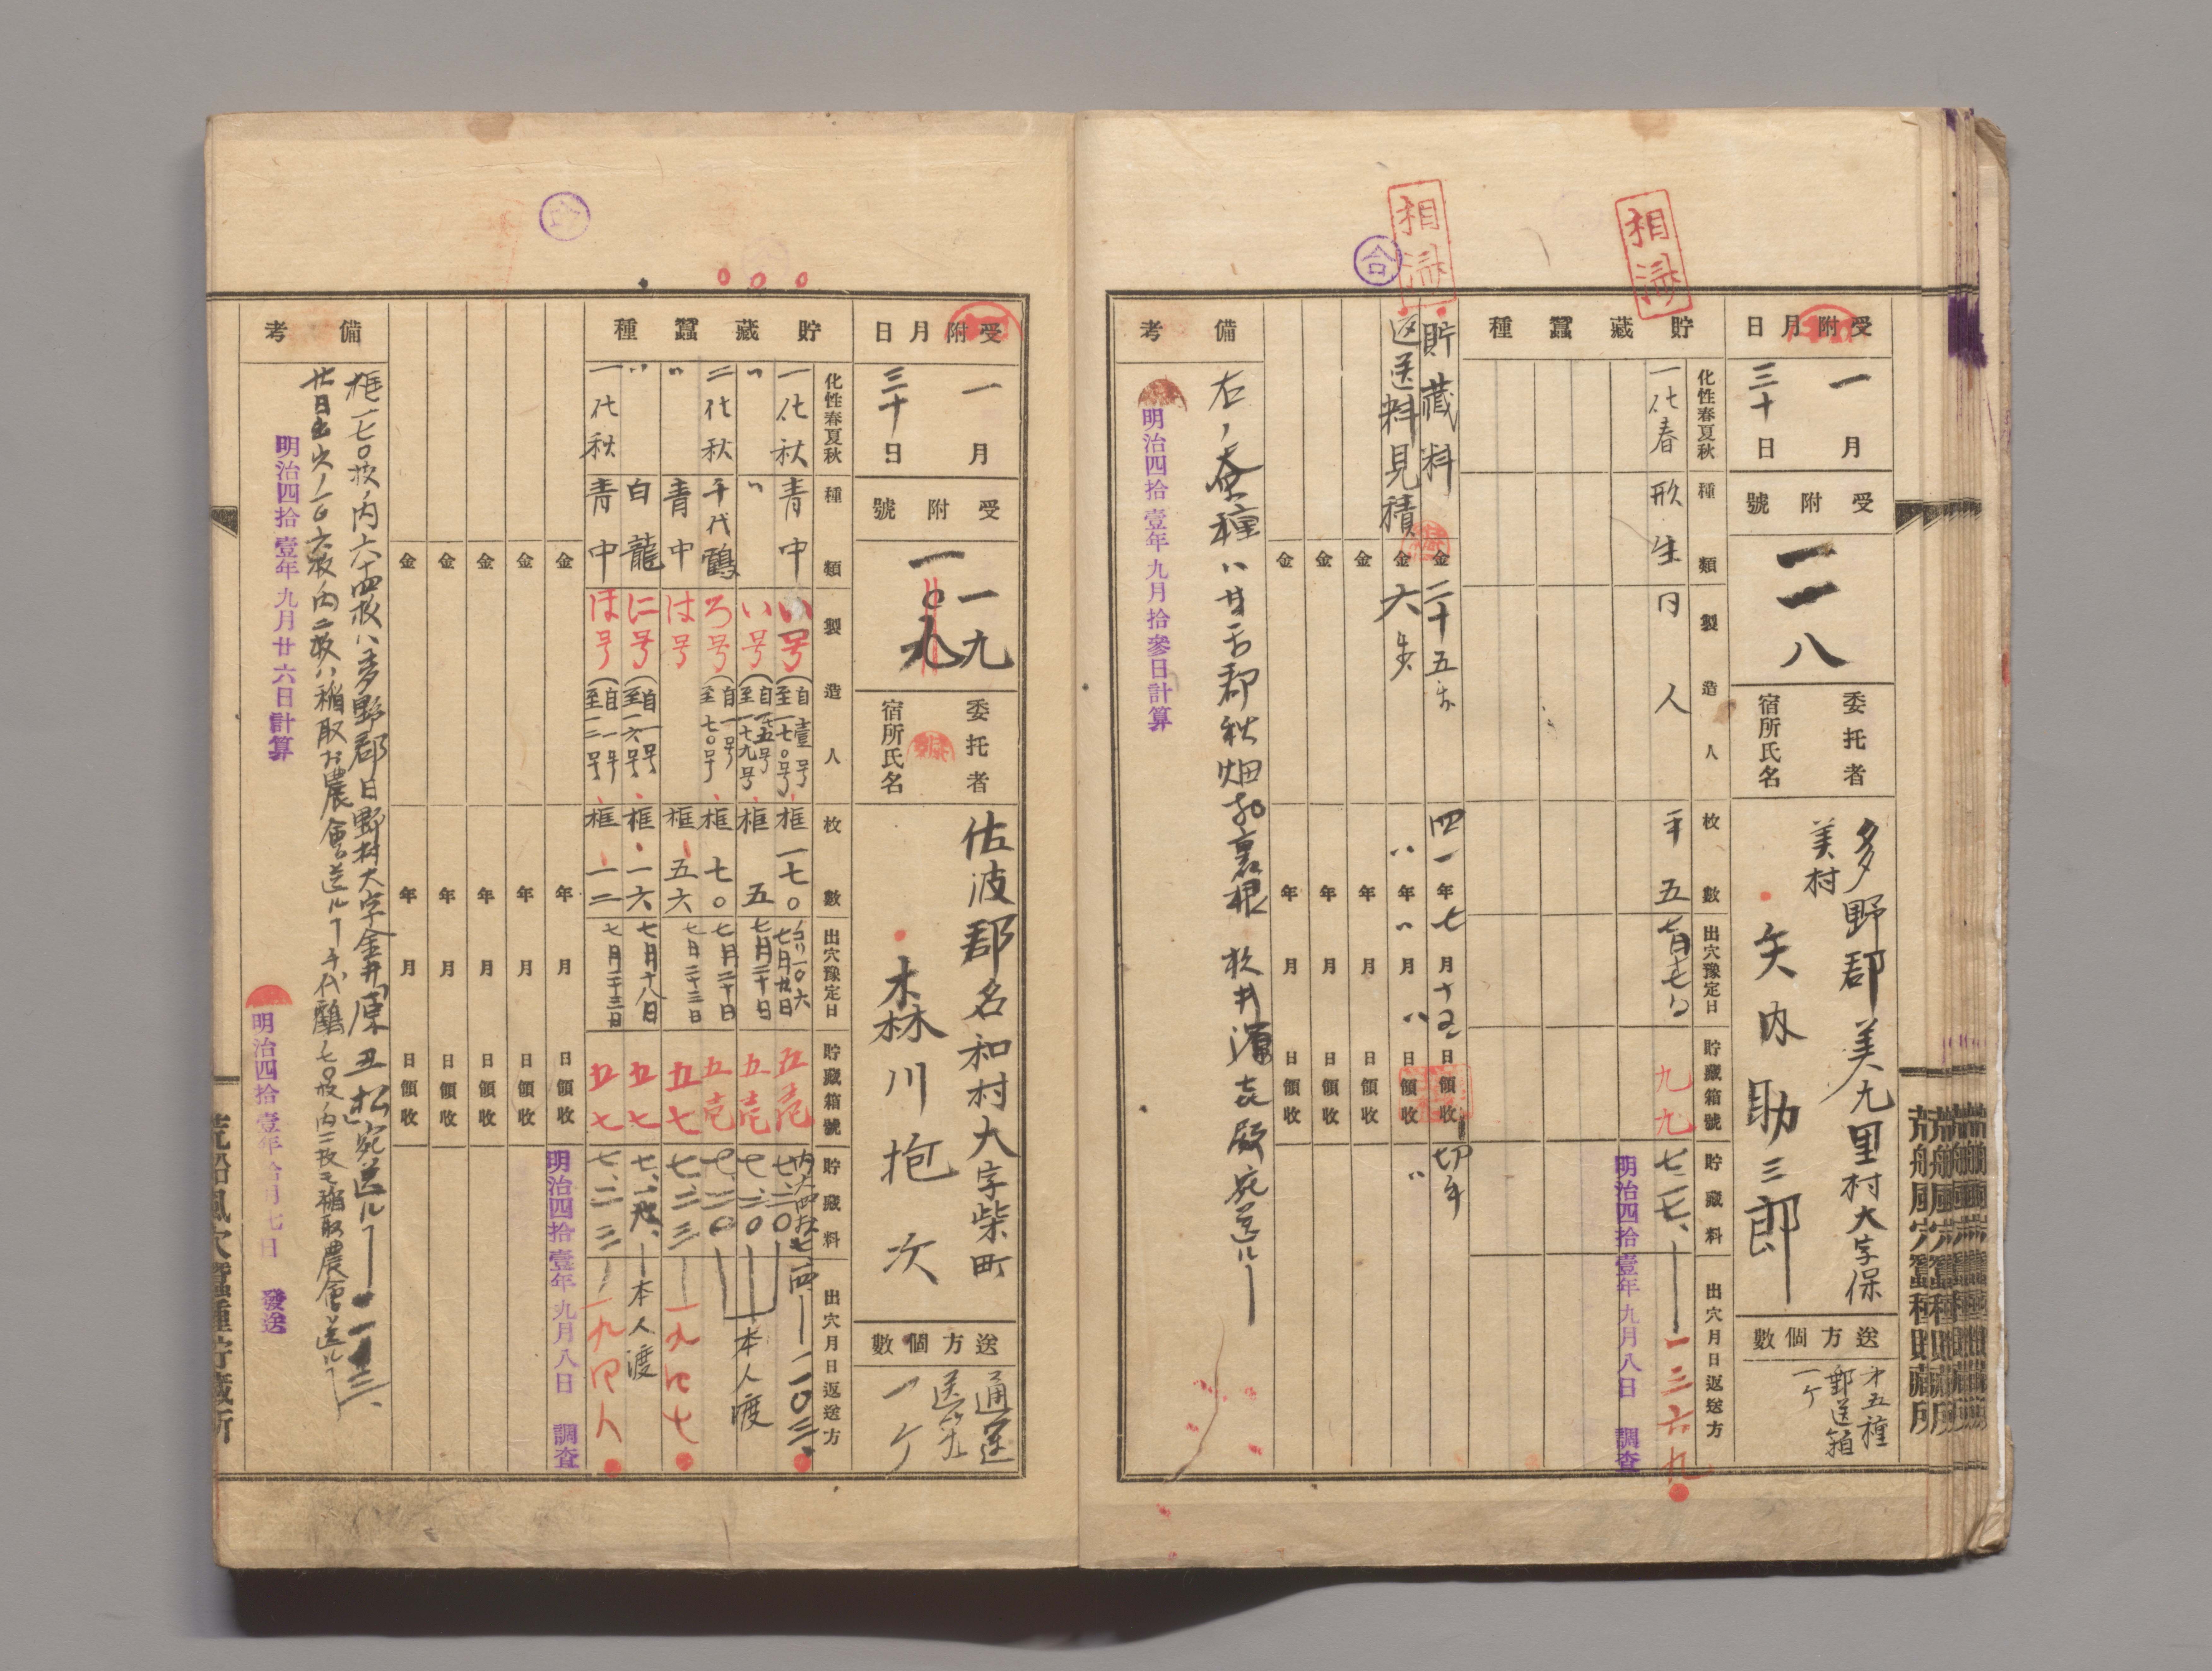 相済
相済
合
受附月日
一月
三十日
受附號
一一八
委托者
宿所氏名
多野郡美九里村大字保
美村
矢内助三郎
送方個數
才五種
郵送箱
一ケ
貯藏蠶種
化性春夏秋
種類
製造人
枚數
出穴豫定日
貯藏箱號
貯藏料
出穴月日返送方
一化春
形生
仝人
平五
九九
一三六九
明治四拾壹年九月八日 調査
貯藏料
金二十五
四一年七月十五日領收
切手
返送料見積
金六
〃年〃月〃日領收
〃
金 年 月 日領收
金 年 月 日領收
金 年 月 日領收
備考
右ノ蚕種ハ甘舌郡秋畑村裏根 松井源 殿宛送ル
明治四拾壹年九月拾參日計算
荒船風穴蠶種貯藏所
受附月日
一月
三十日
受附號
一一九
一〇九
委托者
宿所氏名
佐波郡名和村大字柴町
森川抱次
送方個數
通運
送
一ケ
貯藏蠶種
化性春夏秋
種類
製造人
枚數
出穴豫定日
貯藏箱號
貯藏料
出穴月日返送方
一化秋 青中 い号 自壹号至一七〇号 框一七〇 七月廿日 五壱 七、二〇 一一〇三
〃 〃 い号 自一七五号至一七九号 框五 七月二十日 五壱 七、二〇 本人渡
二化秋 千代鶴 ろ号 自一号至七〇号 框七〇 七月二十日 五壱 七、二〇
〃 青中 は号 框五六 七月二十三日 五七 七、二三 一九四七
〃 白龍 に号 自一号至一六号 框一六 七月十八日 五七 本人渡
一化秋 青中 ほ号 自一号至一二号 框一二 七月二十三日 五七 七、二三 一九四八
明治四拾壹年九月八日 調査
金 年 月 日領收
金 年 月 日領收
金 年 月 日領收
金 年 月 日領收
金 年 月 日領收
備考
框一七〇枚ノ内六十四枚ハ多野郡日野村大字金井原丑松宛送ル
廿日出穴ノ一〇六枚ノ内二枚ハ稲取村農會ヘ送ル 千代鶴七〇枚ノ内二枚モ稲取農會ヘ送ル
明治四拾壹年九月廿六日計算
明治四拾壹年拾月七日 發送
荒船風穴蠶種貯藏所